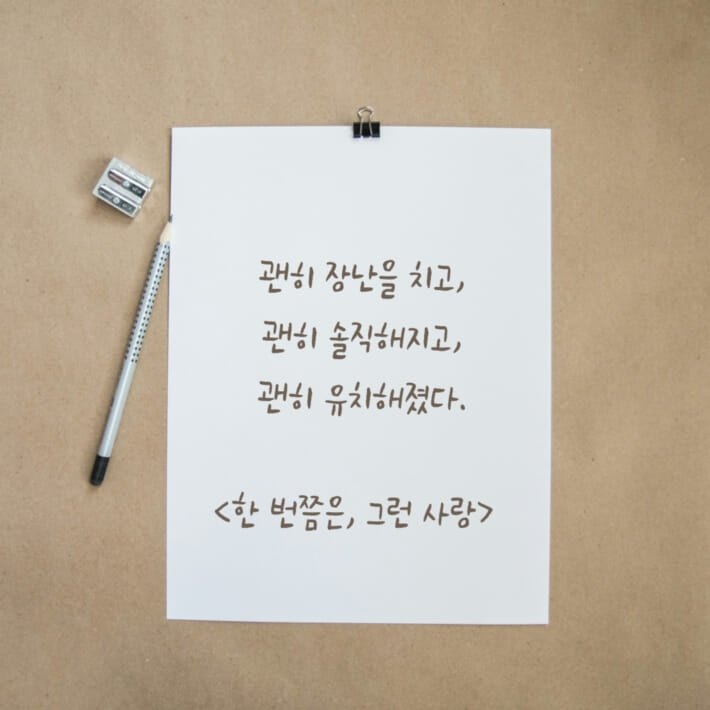 괜히 장난을 치고,
괜히 솔직해지고,
괜히 유치해졌다.
<한 번쯤은, 그런 사랑>